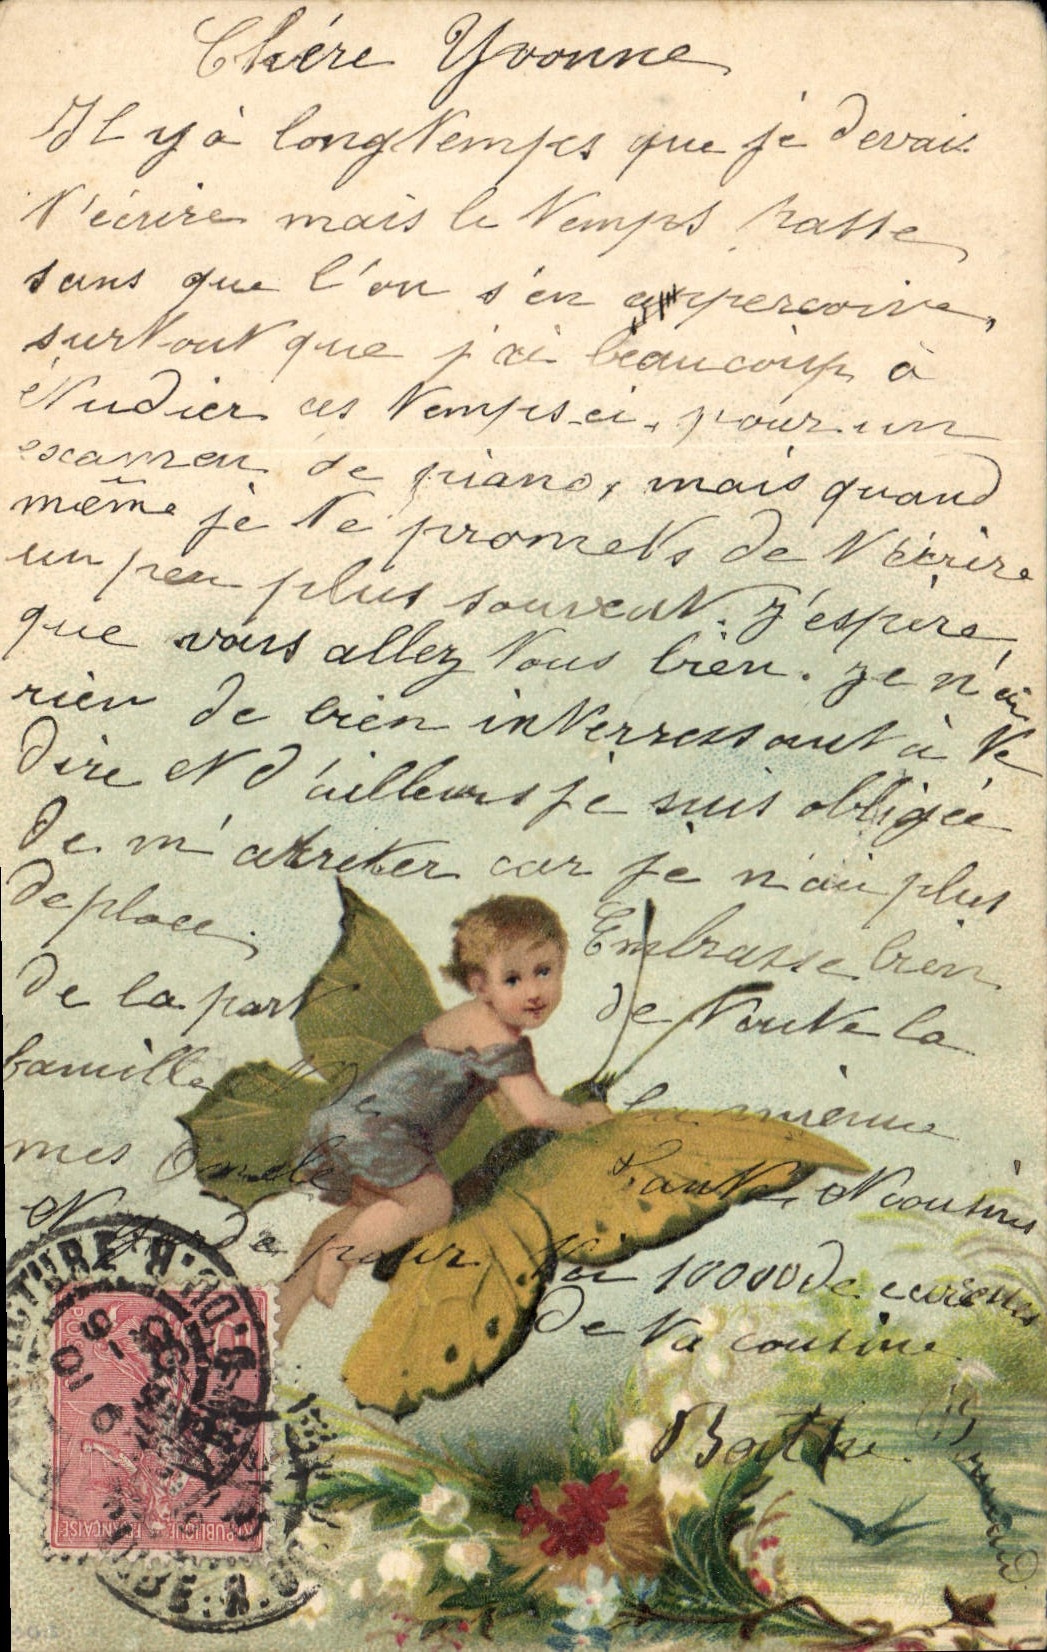 Chére Yvonne
Il y à longtemps que je devais
t'écrire mais le temps passe
sans que l'on s'en apperçoive,
surtout que j'ai beaucoup à
étudier ces temps-ci, pour un
examen de piano, mais quand
même je te promets de t'écrire
un peu plus souvent. J'espère
que vous allez tous bien. Je n'ai
rien de bien interressant à te
dire et d'ailleurs je suis obligée
de m'arrêter car je n'ai plus
de place. Embrasse bien
de la part de toute la
famille la mienne
mes Oncle Tante et cousins
et garde pour toi 10000 de caresses
de ta cousine
REPUBLIQUE FRANÇAISE